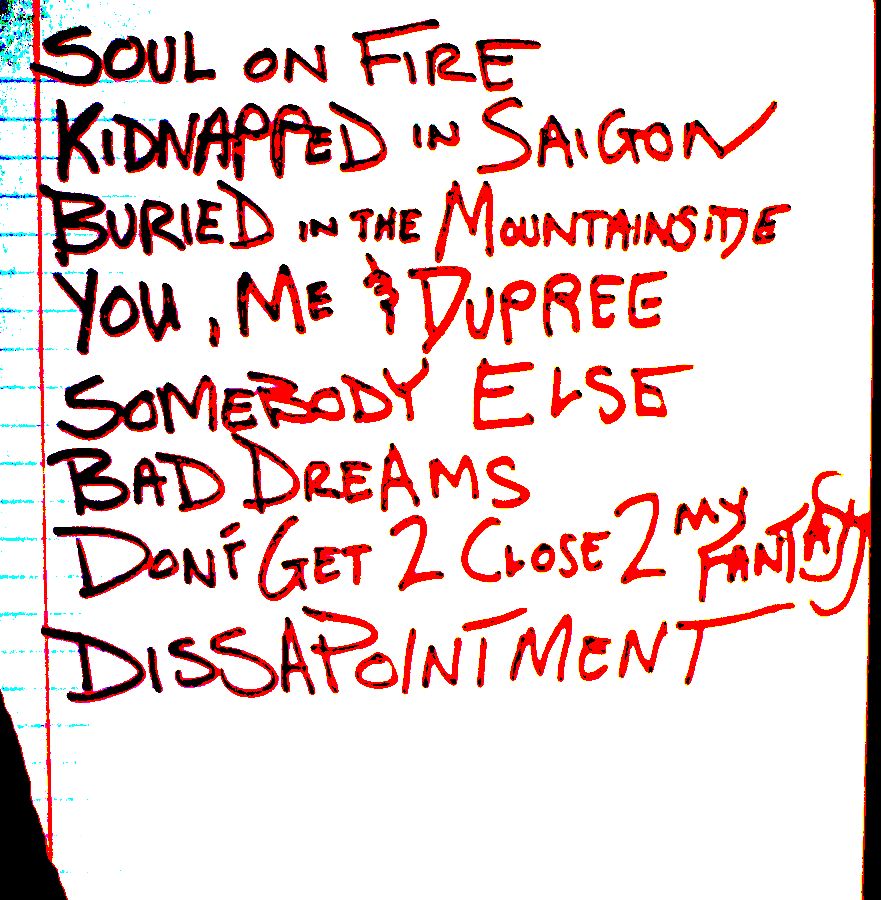 SOUL ON FIRE
KIDNAPPED IN SAIGON
BURIED IN THE MOUNTAINSIDE
YOU, ME & DUPREE
SOMEBODY ELSE
BAD DREAMS
DON'T GET 2 CLOSE 2 MY FANTASY
DISSAPOINTMENT